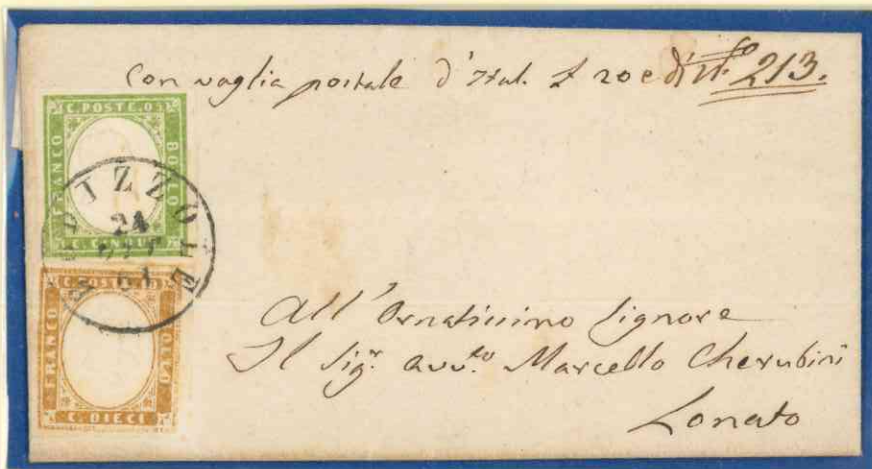 Con vaglia postale d'Ital. £ 20 e di N.º 213.
C. POSTE. 05
FRANCO
BOLLO
C. CINQUE
BEDIZZOLE
24
61
C. POSTE. 10
FRANCO
BOLLO
C. DIECI
All'Ornatissimo Signore
Il Sigr. avvto Marcello Cherubini
Lonato